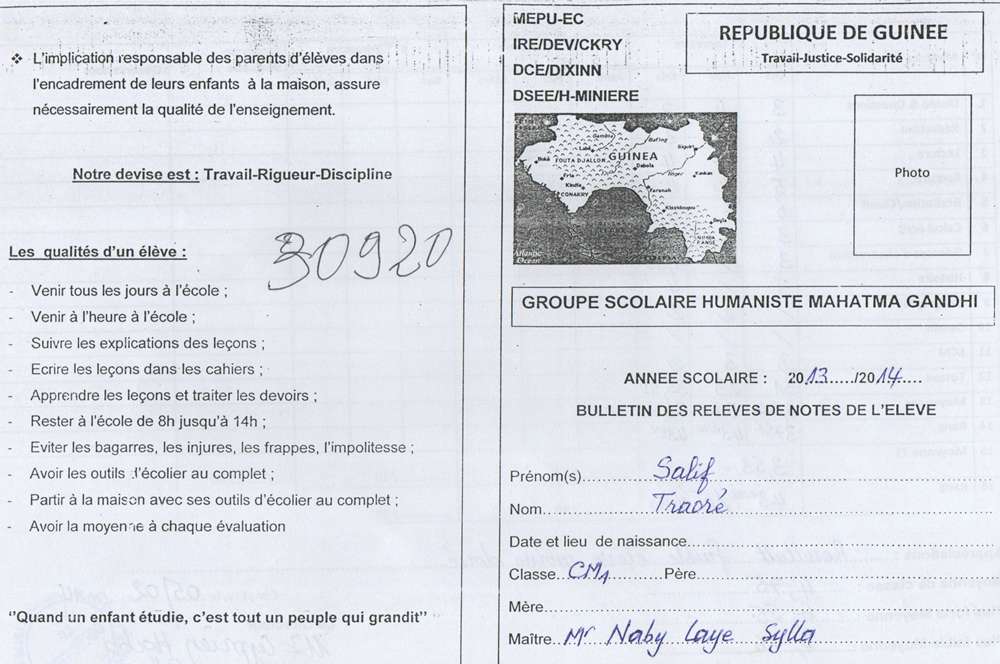 ❖ L'implication responsable des parents d'élèves dans
l'encadrement de leurs enfants à la maison, assure
nécessairement la qualité de l'enseignement.
Notre devise est : Travail-Rigueur-Discipline
30920
Les qualités d'un élève :
- Venir tous les jours à l'école ;
- Venir à l'heure à l'école ;
- Suivre les explications des leçons ;
- Ecrire les leçons dans les cahiers ;
- Apprendre les leçons et traiter les devoirs ;
- Rester à l'école de 8h jusqu'à 14h ;
- Eviter les bagarres, les injures, les frappes, l'impolitesse ;
- Avoir les outils d'écolier au complet ;
- Partir à la maison avec ses outils d'écolier au complet ;
- Avoir la moyenne à chaque évaluation
''Quand un enfant étudie, c'est tout un peuple qui grandit''
MEPU-EC
IRE/DEV/CKRY
DCE/DIXINN
DSEE/H-MINIERE
REPUBLIQUE DE GUINEE
Travail-Justice-Solidarité
Photo
GUINEA
FOUTA DJALLON
Gambia
Bafing
Labé
Siguiri
Boké
Dabola
Kankan
Fria
Kindia
Niger
CONAKRY
Faranah
Kissidougou
Beyla
GUINEA RANGE
Atlantic
Ocean
GROUPE SCOLAIRE HUMANISTE MAHATMA GANDHI
ANNEE SCOLAIRE : 2013...../2014....
BULLETIN DES RELEVES DE NOTES DE L'ELEVE
Prénom(s) Salif
Nom Traoré
Date et lieu de naissance
Classe CM1 Père
Mère
Maître Mr Naby Laye Sylla